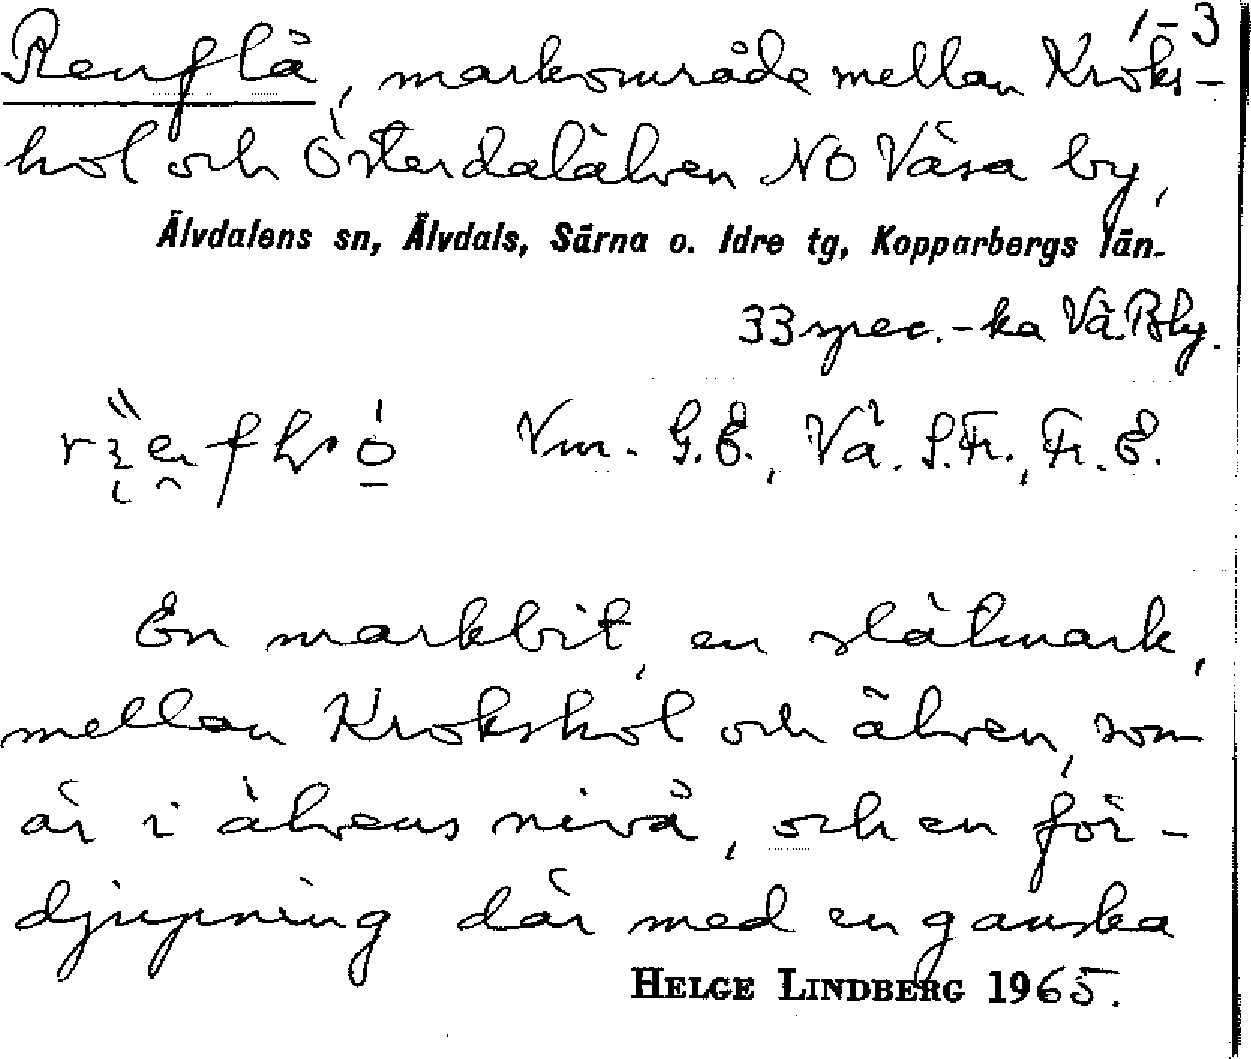 1-3
Renflå, markområde mellan Kroks-
hol och Österdalälven NO Våsa by,
Älvdalens sn, Älvdals, Särna o. Idre tg, Kopparbergs län.
33 spec.-ka Vå Bby.
Vm. G.E., Vå. S.Fr., Fr. E.
En markbit, en slåtmark,
mellan Krokshol och älven, som
är i älvens nivå, och en för-
djupning där med en ganska
HELGE LINDBERG 1965.